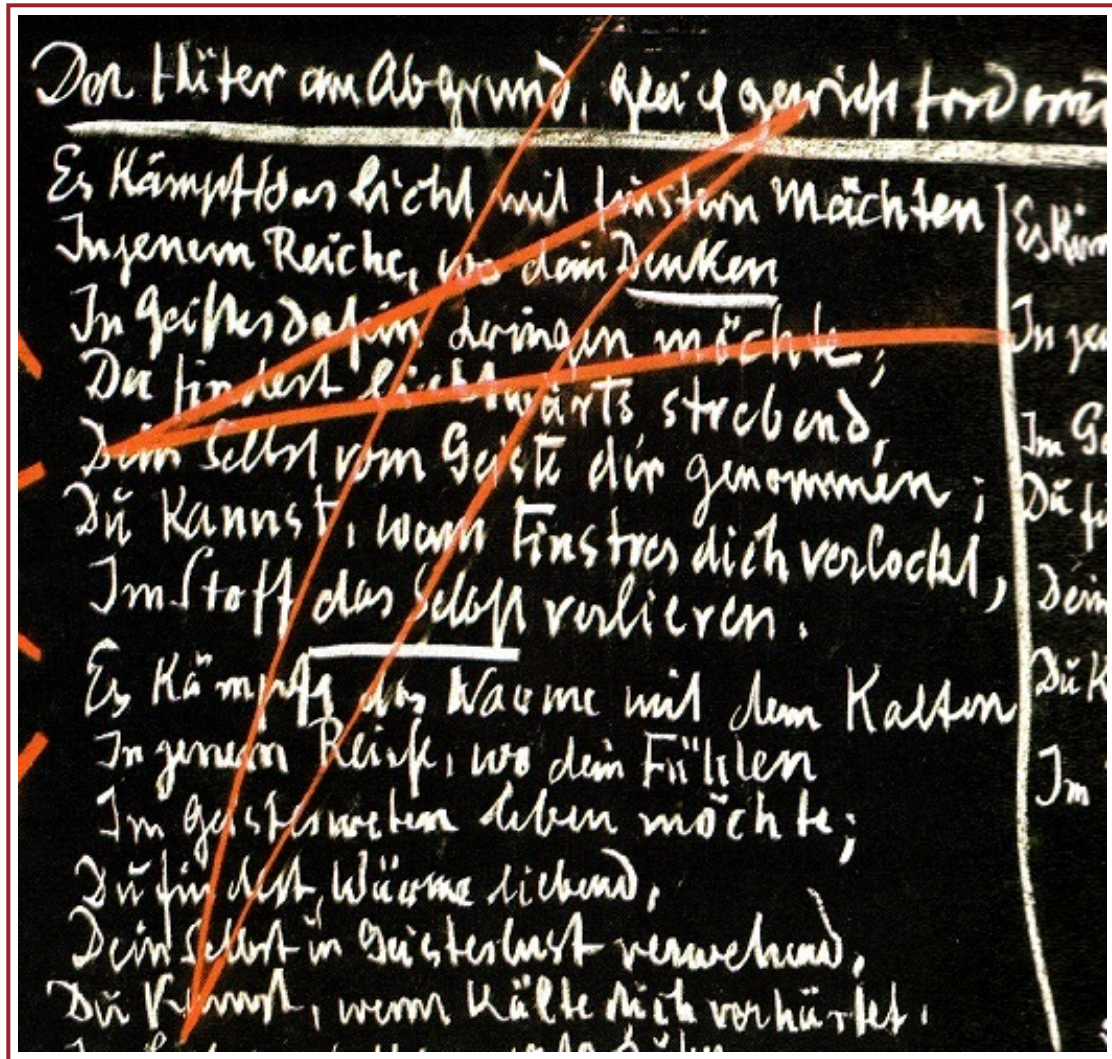 Der Hüter am Abgrund, gleichgewicht fordernd
Es Kämpft das Licht mit finstern Mächten
In jenem Reiche, wo dein Denken
In Geistesdasein dringen möchte;
Du findest lichtwärts strebend,
Dein Selbst vom Geiste dir genommen;
Du Kannst, wenn Finstres dich verlockt,
Im Stoff das Selbst verlieren.
Es Kämpft das Warme mit dem Kalten
In jenem Reiche, wo dein Fühlen
Im Geistesweben leben möchte;
Du findest, Wärme liebend,
Dein Selbst in Geisteslust verwehend,
Du Kannst, wenn Kälte dich verhärtet.
In
In
Im
Du
Dein
Du
Im